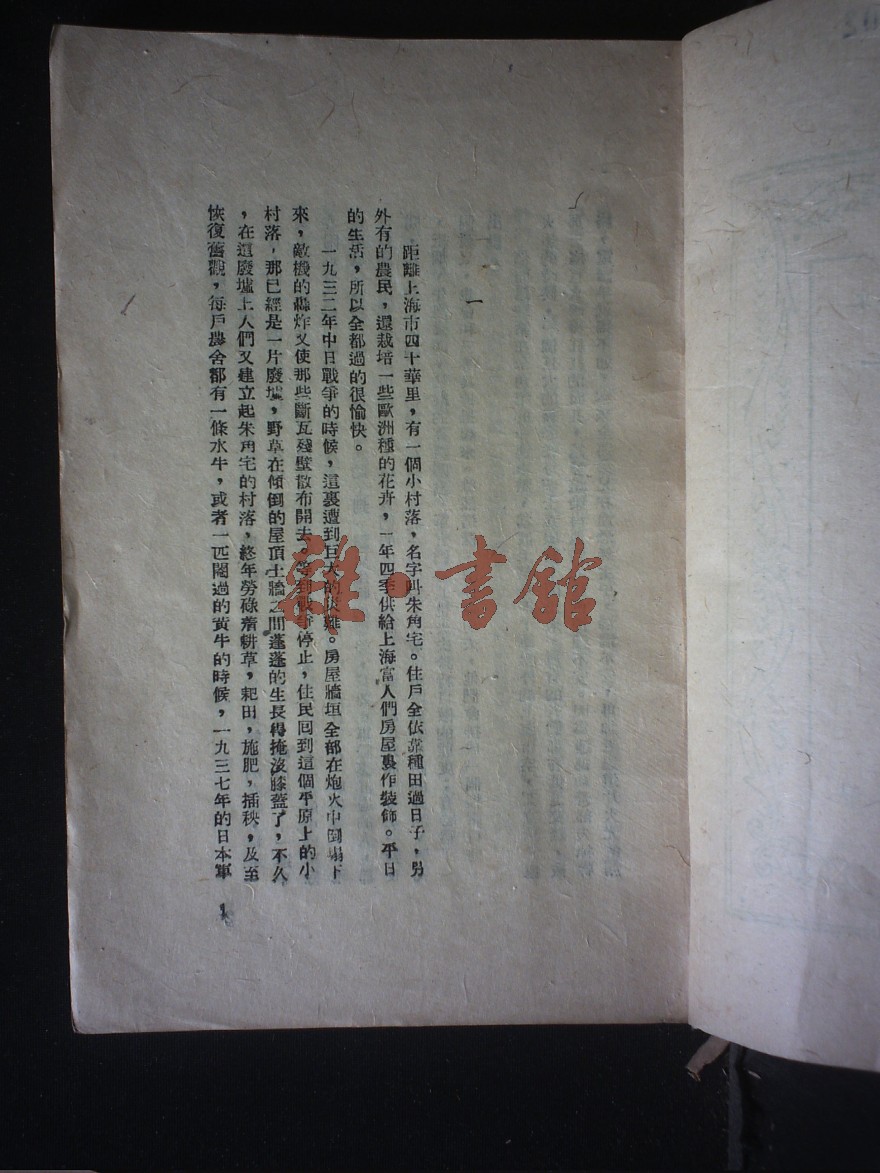 一
距離上海市四十華里，有一個小村落，名字叫朱角宅。住戶全依靠種田過日子，另
外有的農民，還栽培一些歐洲種的花卉，一年四季供給上海富人們房屋裏作裝飾。平日
的生活，所以全都過的很愉快。
一九三二年中日戰爭的時候，這裏遭到巨大的災難。房屋牆垣全部在炮火中倒塌下
來，敵機的轟炸又使那些斷瓦殘壁散布開去。等到戰爭停止，住民回到這個平原上的小
村落，那已經是一片廢墟，野草在傾倒的屋頂土牆之間蓬蓬的生長得掩沒膝蓋了，不久
，在這廢墟上人們又建立起朱角宅的村落，終年勞碌着耕草，耙田，施肥，插秧，及至
恢復舊觀，每戶農舍都有一條水牛，或者一匹閹過的黃牛的時候，一九三七年的日本軍
1
雜·書館